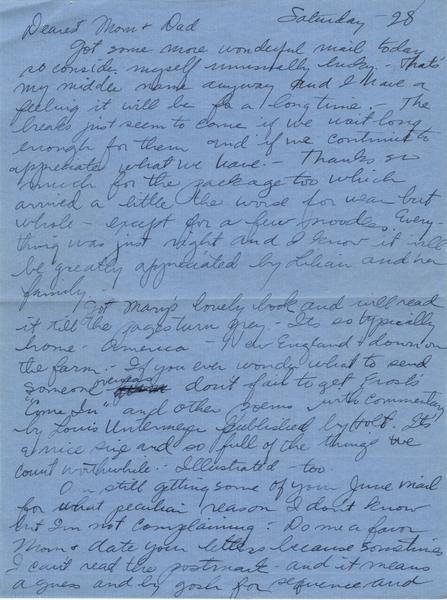 Dearest Mom & Dad Saturday - 28
Got some more wonderful mail today
so consider myself unusually lucky - That's
my middle name anyway and I have a
feeling it will be for a long time. - The
breaks just seem to come if we wait long
enough for them and if we continue to
appreciate what we have. - Thanks so
much for the package too which
arrived a little the worse for wear but
whole - except for a few noodles. Every
thing was just right and I know it will
be greatly appreciated by Lilian and her
family.
Got Mary's lovely book and will read
it till the pages turn grey - Its so typically
home - America - New England - down on
the farm. - If you ever wonder what to send
someone overseas don't fail to get Frosts
"Come In" and other poems with commentary
by Louis Untermeyer published by Holt. Its
a nice size and so full of the things we
count worthwhile - Illustrated - too
still getting some of your June mail
for what peculiar reason I don't know
but I'm not complaining. Do me a favor
Mom & date your letters because sometimes
I can't read the postmark - and it means
a guess and by gosh for sequence and